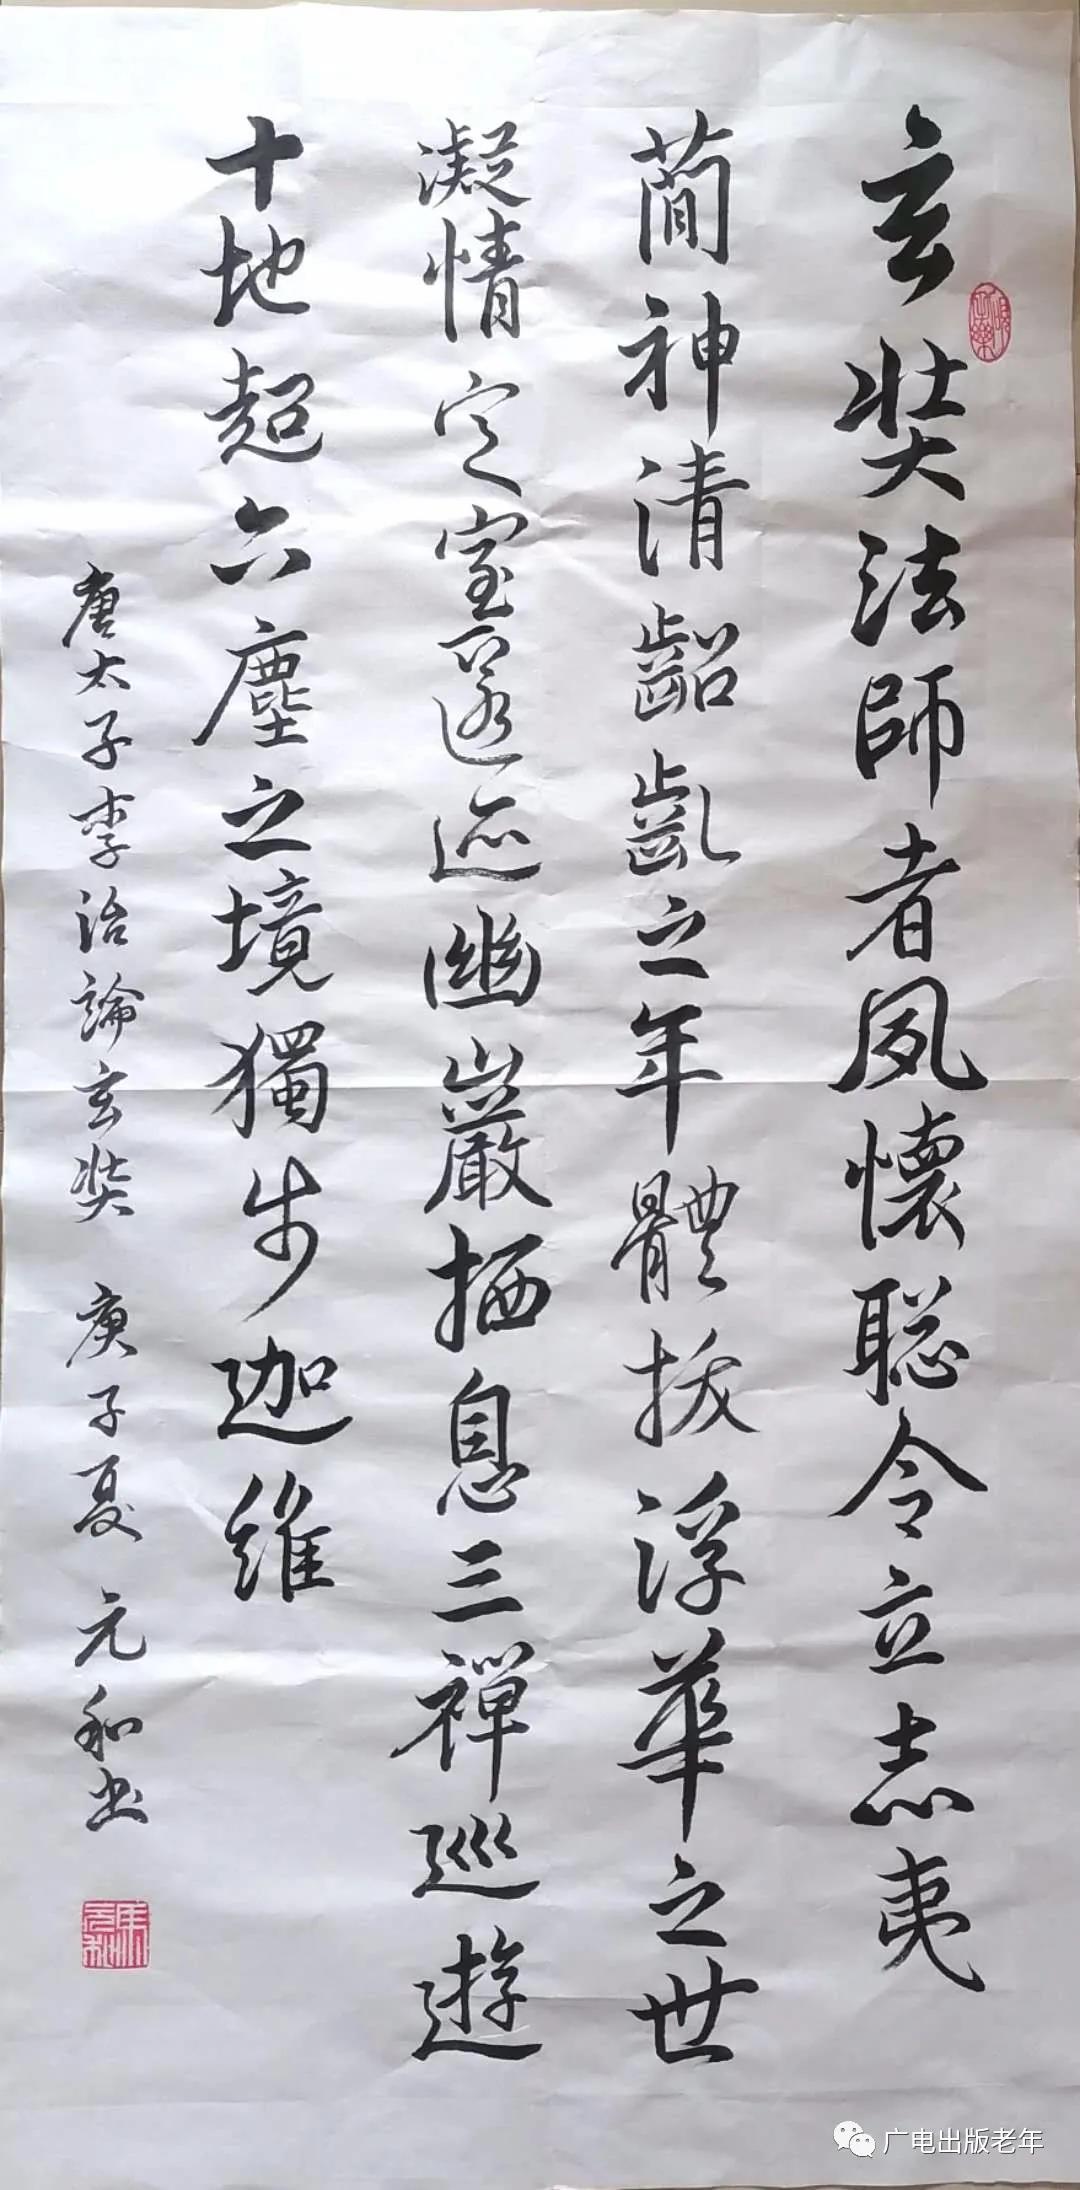 玄奘法師者夙懷聡令立志夷
簡神清齠齔之年體拔浮華之世
凝情定室匿迹幽巖栖息三禪巡遊
十地超六塵之境獨步迦維
唐太子李治論玄奘 庚子夏 元和书
广电出版老年